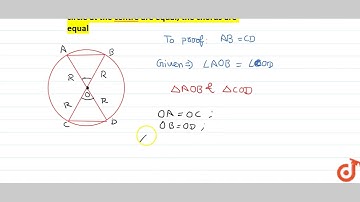 circle at the centre are equal, the chords are
equal
To proof: AB=CD
Given⇒ ∠AOB = ∠COD
△AOB & △COD
OA=OC ;
OB=OD ;
A B
R R
O
R R
C D